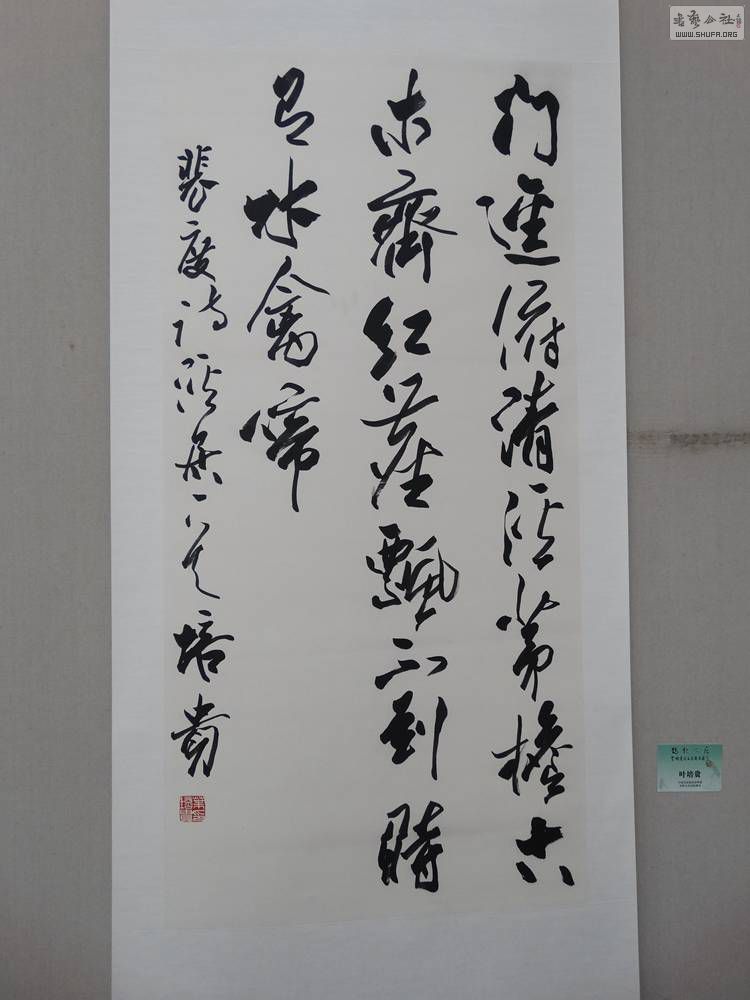 門逕俯清溪茅檐古
木齊紅塵飄不到時
有水禽啼
裴度詩溪居一首培貴
叶培贵
書藝公社
WWW.SHUFA.ORG